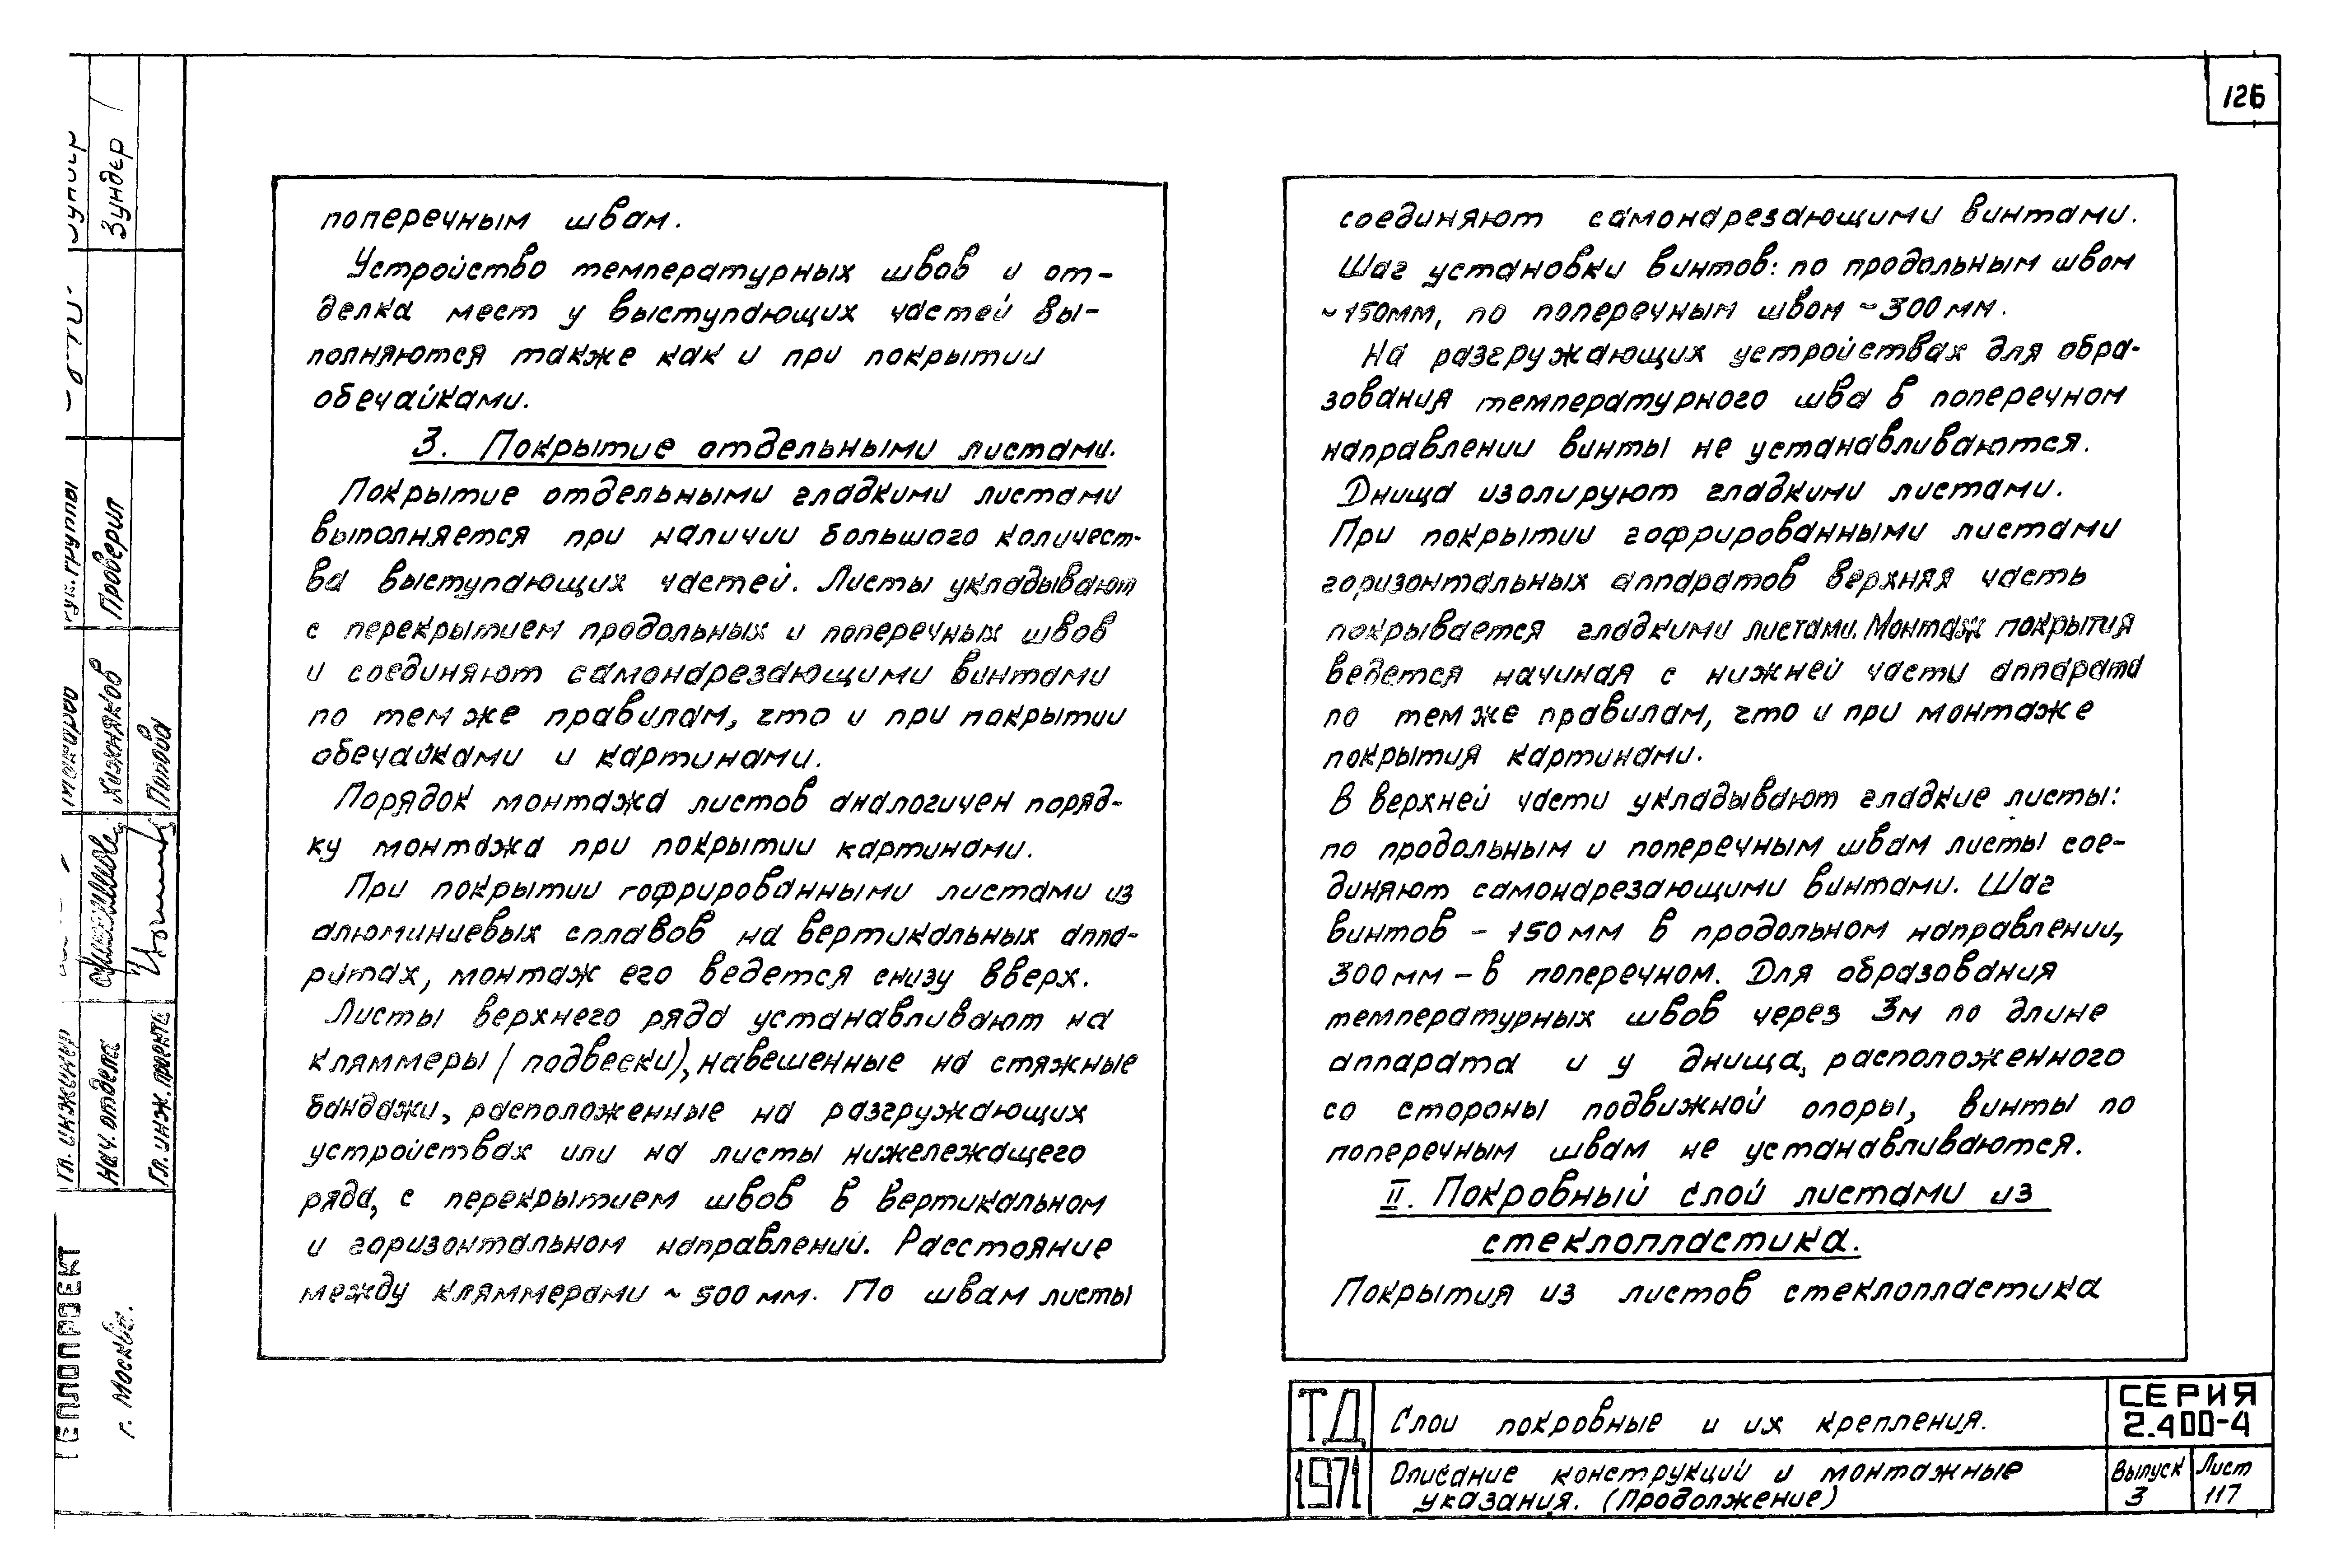 126
поперечным швам.
Устройство температурных швов и от-
делка мест у выступающих частей вы-
полняются также как и при покрытии
обечайками.
3. Покрытие отдельными листами.
Покрытие отдельными гладкими листами
выполняется при наличии большого количест-
ва выступающих частей. Листы укладывают
с перекрытием продольных и поперечных швов
и соединяют самонарезающими винтами
по тем же правилам, что и при покрытии
обечайками и картинами.
Порядок монтажа листов аналогичен поряд-
ку монтажа при покрытии картинами.
При покрытии гофрированными листами из
алюминиевых сплавов на вертикальных аппа-
ратах, монтаж его ведется снизу вверх.
Листы верхнего ряда устанавливают на
кляммеры / подвески), навешенные на стяжные
бандажи, расположенные на разгружающих
устройствах или на листы нижележащего
ряда, с перекрытием швов в вертикальном
и горизонтальном направлений. Расстояние
между кляммерами ~ 500 мм. По швам листы
соединяют самонарезающими винтами.
Шаг установки винтов: по продольным швом
~150мм, по поперечным швом ~300 мм.
На разгружающих устройствах для обра-
зования температурного шва в поперечном
направлении винты не устанавливаются.
Днища изолируют гладкими листами.
При покрытии гофрированными листами
горизонтальных аппаратов верхняя часть
покрывается гладкими листами. Монтаж покрытия
ведется начиная с нижней части аппарата
по тем же правилам, что и при монтаже
покрытия картинами.
В верхней части укладывают гладкие листы:
по продольным и поперечным швам листы сое-
диняют самонарезающими винтами. Шаг
винтов - 150 мм в продольном направлении,
300 мм - в поперечном. Для образования
температурных швов через 3м по длине
аппарата и у днища, расположенного
со стороны подвижной опоры, винты по
поперечным швам не устанавливаются.
II. Покровный слой листами из
стеклопластика.
Покрытия из листов стеклопластика
ТД
1971
Слои покровные и их крепления.
Описание конструкций и монтажные
указания. (Продолжение)
СЕРИЯ
2.400-4
Выпуск
3
Лист
117
Зундер
Рук. группы
Проверил
Попова
Гл. инженер
Нач. отдела
Гл. инж. проекта
ТЕПЛОПРОЕКТ
г. Москва.